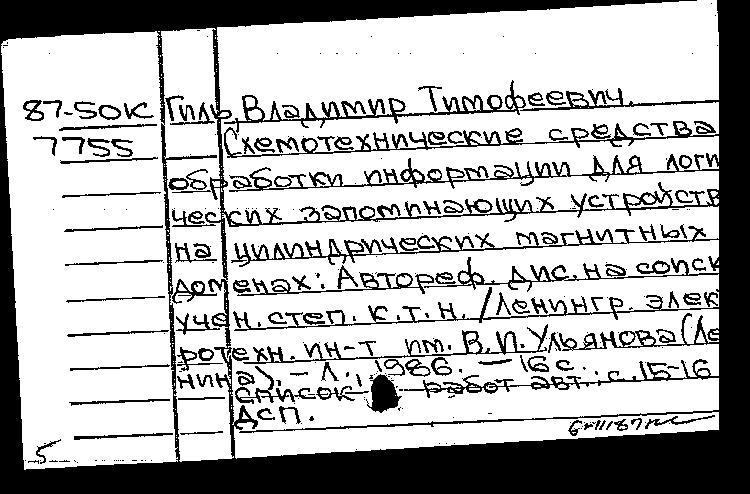 87-50К Гиль, Владимир Тимофеевич.
7755 Схемотехнические средства
обработки информации для логи
ческих запоминающих устройств
на цилиндрических магнитных
доменах: Автореф. дис. на соиск
учен. степ. к.т.н. /Ленингр. элек
ротехн. ин-т им. В.И. Ульянова (Ле
нина). - Л., 1986. - 16 с.
список работ авт.: с. 15-16
ДСП.
5